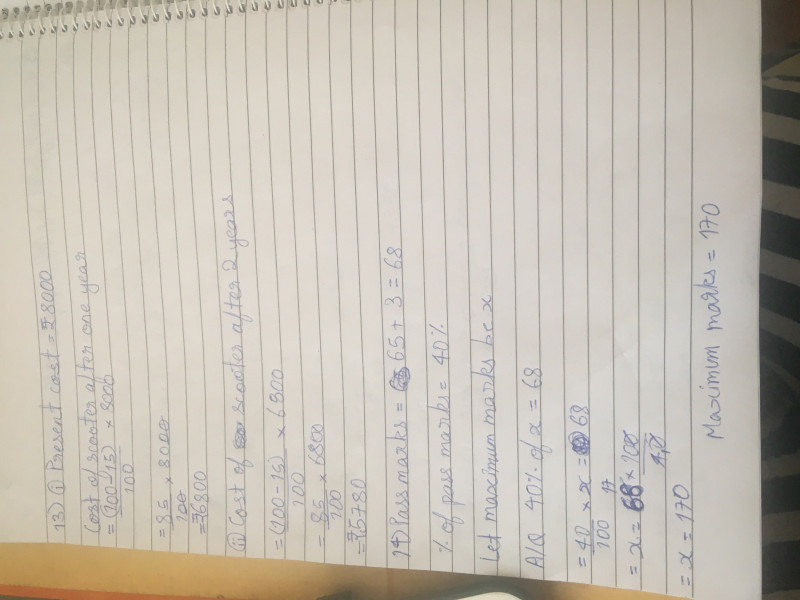 13) (i) Present cost = ₹8000
Cost of scooter after one year
= (100-15) × 8000
100
= 85 × 8000
100
= ₹6800
(ii) Cost of scooter after 2 years
= (100-15) × 6800
100
= 85 × 6800
100
= ₹5780
14) Pass marks = 65 + 3 = 68
% of pass marks = 40%
Let maximum marks be x
A/Q 40% of x = 68
= 40 × x = 68
100
17
= x = 68 × 100
40
= x = 170
Maximum marks = 170